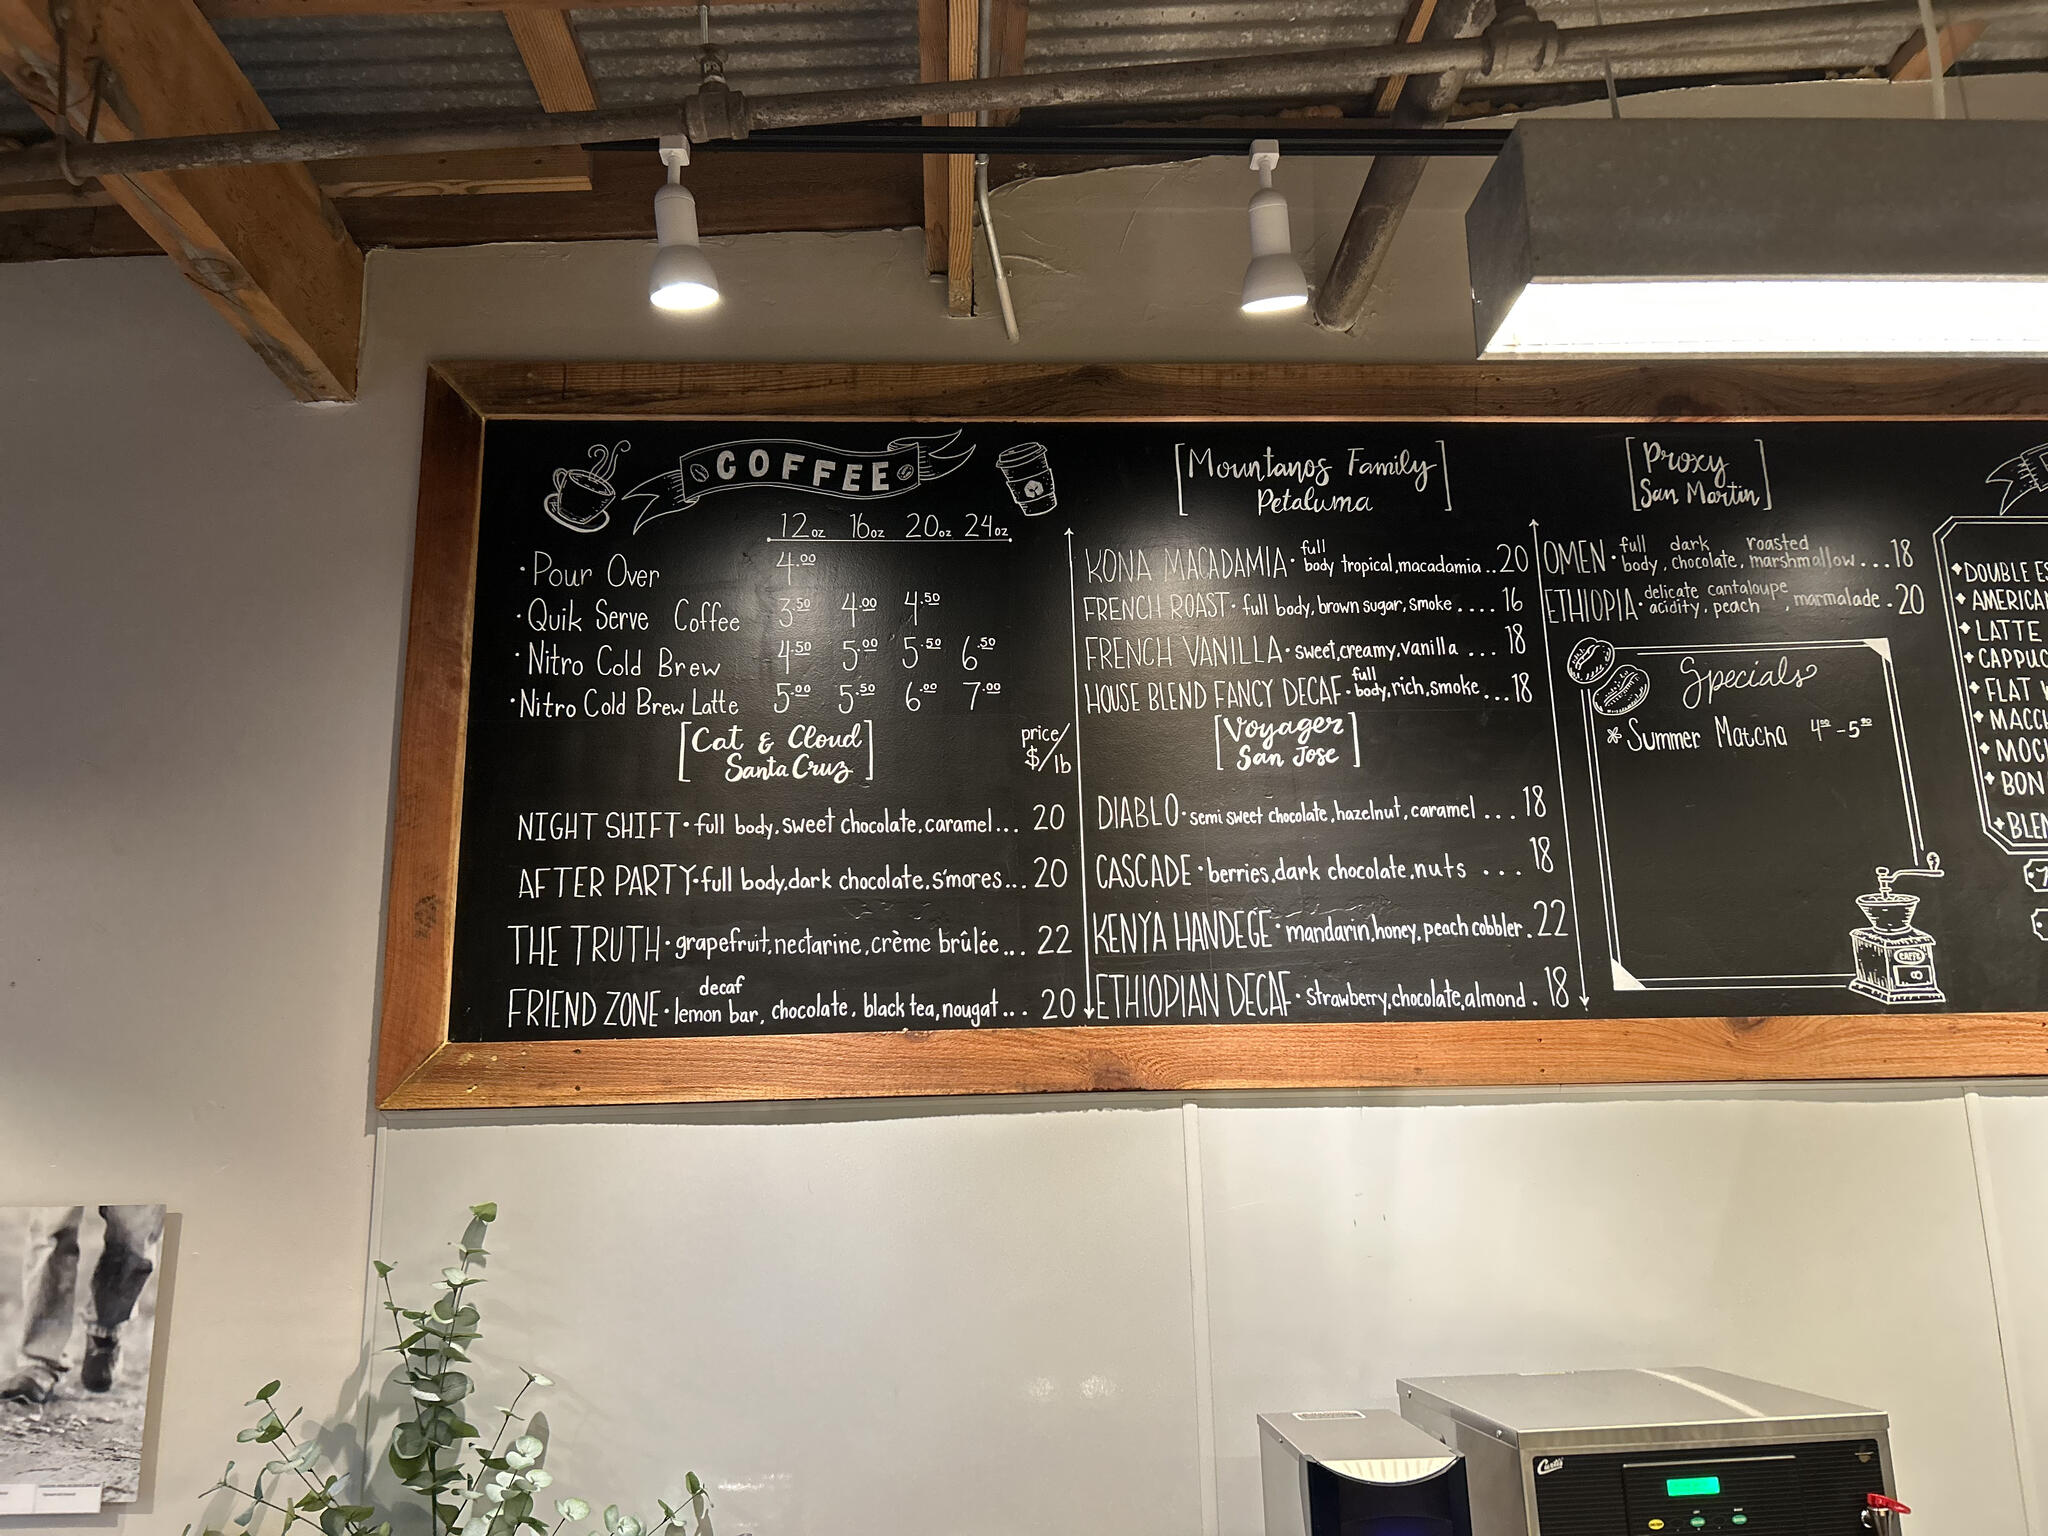 COFFEE
12oz 16oz 20oz 24oz
• Pour Over 4.00
• Quik Serve Coffee 3.50 4.00 4.50
• Nitro Cold Brew 4.50 5.00 5.50 6.50
• Nitro Cold Brew Latte 5.00 5.50 6.00 7.00
[Cat & Cloud
Santa Cruz]
price/
$/lb
NIGHT SHIFT • full body, sweet chocolate, caramel... 20
AFTER PARTY • full body, dark chocolate, s'mores... 20
THE TRUTH • grapefruit, nectarine, crème brûlée... 22
decaf
FRIEND ZONE • lemon bar, chocolate, black tea, nougat... 20
[Mountanos Family
Petaluma]
full
KONA MACADAMIA • body tropical, macadamia.. 20
FRENCH ROAST • full body, brown sugar, smoke.... 16
FRENCH VANILLA • sweet, creamy, vanilla ... 18
full
HOUSE BLEND FANCY DECAF • body, rich, smoke... 18
[Voyager
San Jose]
DIABLO • semi sweet chocolate, hazelnut, caramel ... 18
CASCADE • berries, dark chocolate, nuts ... 18
KENYA HANDEGE • mandarin, honey, peach cobbler. 22
ETHIOPIAN DECAF • strawberry, chocolate, almond. 18
[Proxy
San Martin]
full dark roasted
OMEN • body, chocolate, marshmallow...18
delicate cantaloupe
ETHIOPIA • acidity, peach, marmalade. 20
Specials
Summer Matcha 4.00-5.90
CAFFE
DOUBLE ES
AMERICAN
LATTE
CAPPUC
FLAT
MACCH
MOCH
BON
BLEN
Curtis